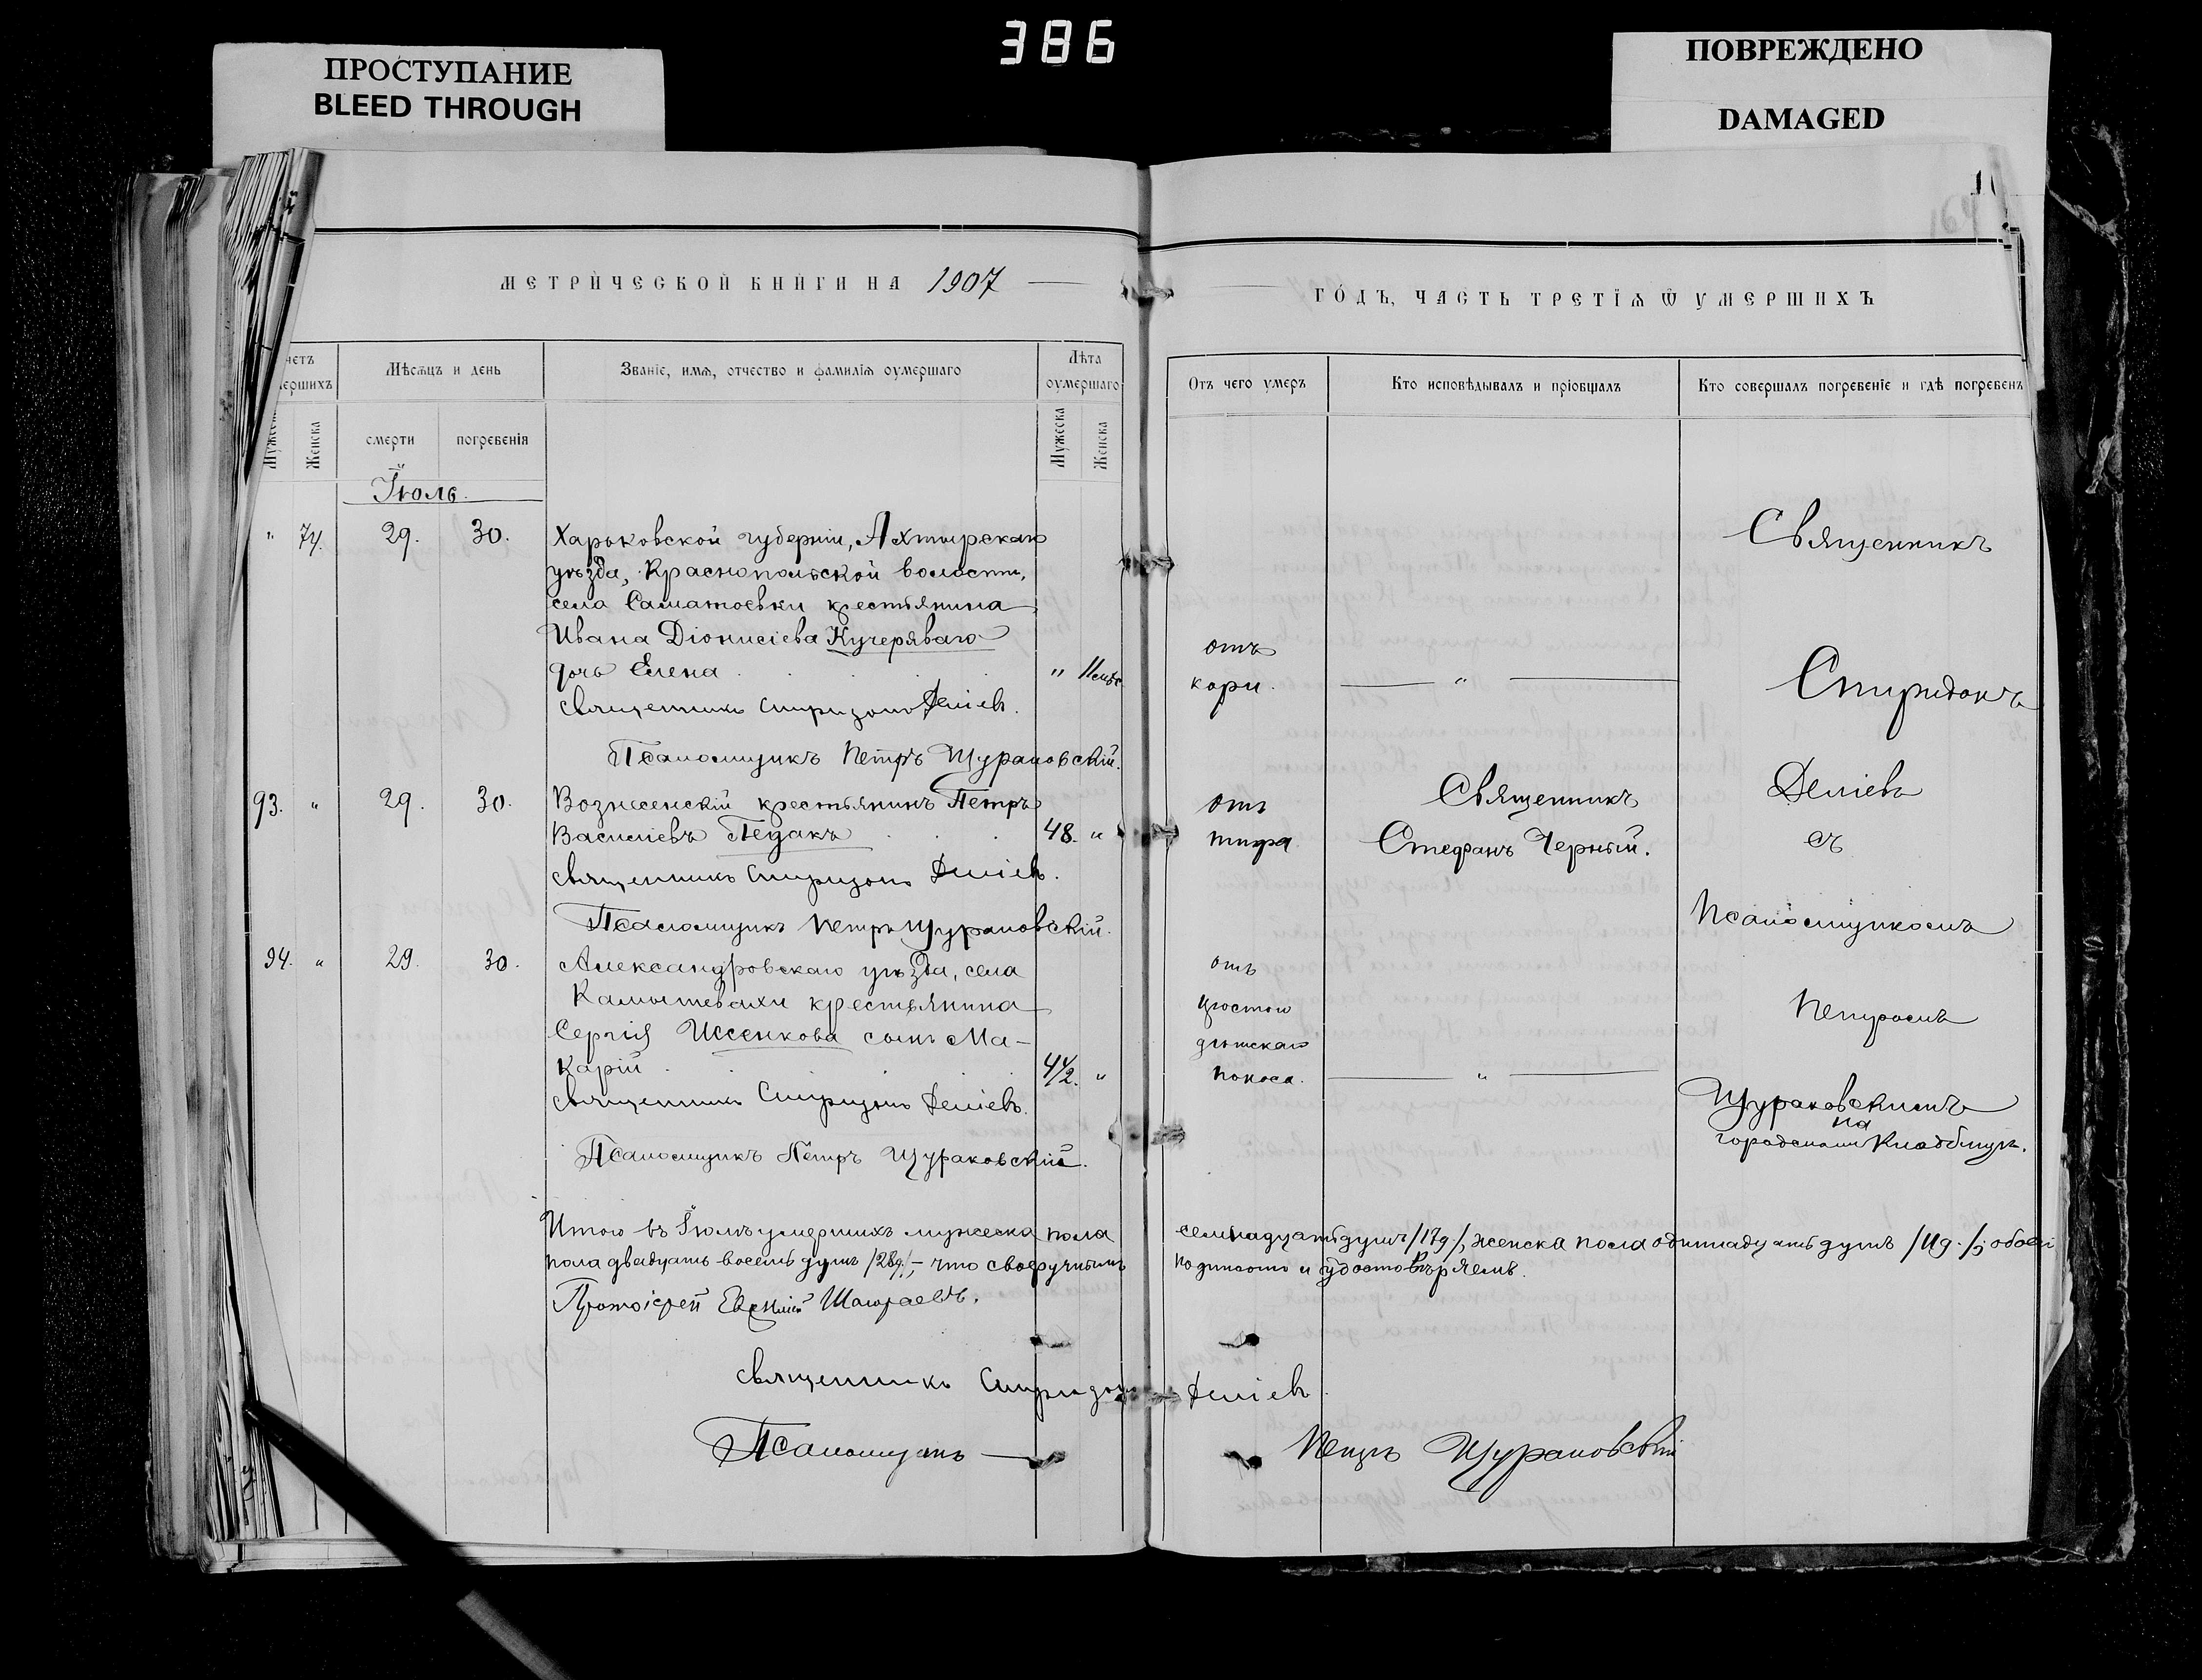 386
ПРОСТУПАНИЕ
BLEED THROUGH
ПОВРЕЖДЕНО
DAMAGED
МЕТРИЧЕСКОЙ КНИГИ НА 1907
четъ
ершихъ
Мѣсяцъ и день
Званіе, имя, отчество и фамилія оумершаго
Лѣта
оумершаго
Женска
смерти
погребенія
Мужеска
Женска
Іюль.
" 74. 29. 30. Харьковской губерніи, Ахтырскаго
уѣзда, Краснопольской волости,
села Саматоевки крестьянина
Ивана Діонисіева Кучеряваго
дочь Елена " 11 мѣс
Священникъ Спиридонъ Деліевъ.
Псаломщикъ Петръ Щураковскій.
93. " 29. 30. Вознесенскій крестьянинъ Петръ
Василіевъ Педакъ 48. "
Священникъ Спиридонъ Деліевъ.
Псаломщикъ Петръ Щураковскій.
94. " 29. 30. Александровскаго уѣзда, села
Камышевахи крестьянина
Сергія Исенкова сынъ Ма-
карій "
Священникъ Спиридонъ Деліевъ.
Псаломщикъ Петръ Щураковскій.
Итого въ Іюлѣ умершихъ мужеска пола
пола двадцать восемь душъ /28д./,- что своеручнымъ
Протоіерей Евгеній
Священникъ Спиридонъ
Псаломщикъ
ГОДЪ, ЧАСТЬ ТРЕТІЯ Ѿ УМЕРШИХЪ
Отъ чего умеръ
Кто исповѣдывалъ и пріобщалъ
Кто совершалъ погребеніе и гдѣ погребенъ
отъ
кори. "
отъ
тифа
Священникъ
Стефанъ Черный.
отъ
дѣтскаго
поноса. "
Священникъ
Спиридонъ
Деліевъ
съ
Псаломщикомъ
Петромъ
Щураковскимъ
на
городскомъ кладбищѣ.
семнадцать душъ /17д./, женска пола одиннадцать душъ /11д./; обоего
подписомъ и удостовѣряемъ.
Деліевъ
Петръ Щураковскій